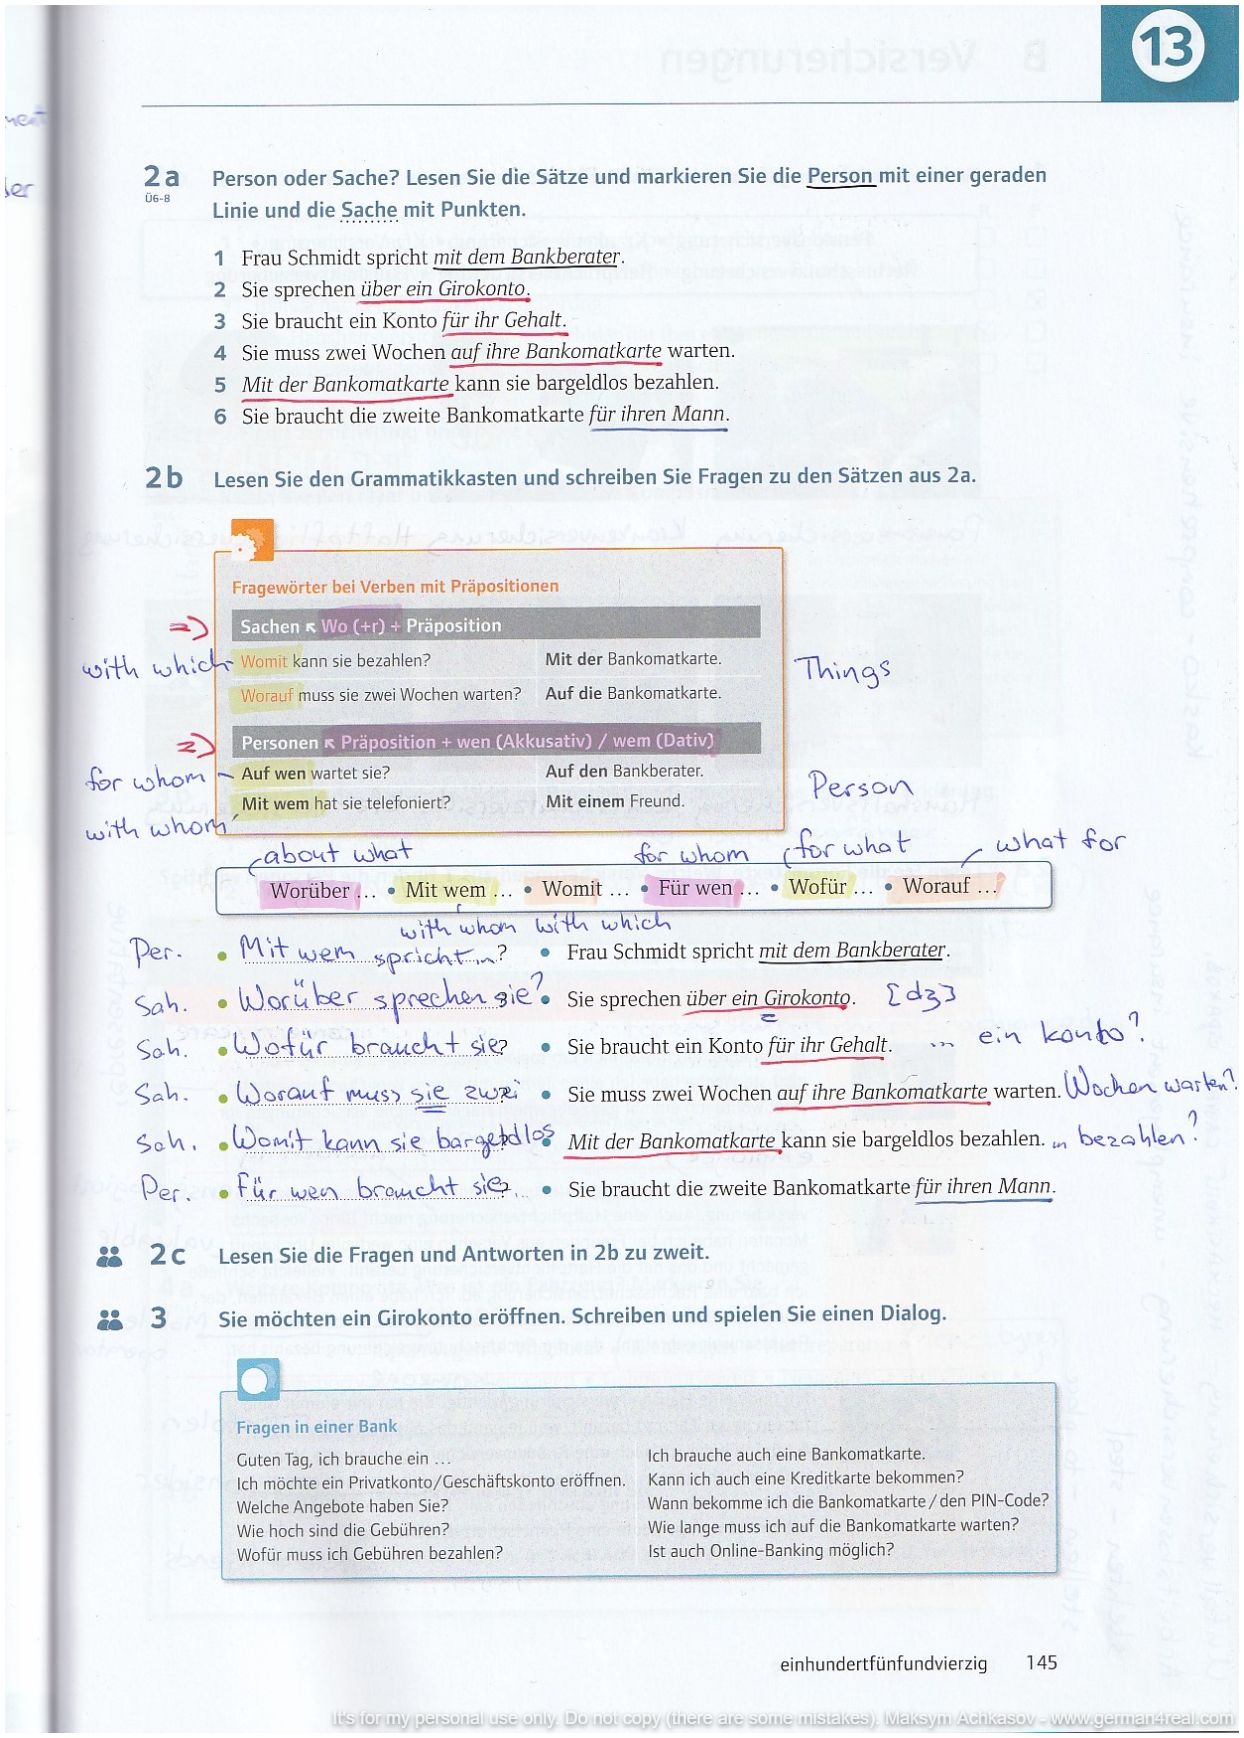 13
ment
ler
B Versicherungen
2a Person oder Sache? Lesen Sie die Sätze und markieren Sie die Person mit einer geraden
Ü6-8
Linie und die Sache mit Punkten.
1 Frau Schmidt spricht mit dem Bankberater.
2 Sie sprechen über ein Girokonto.
3 Sie braucht ein Konto für ihr Gehalt.
4 Sie muss zwei Wochen auf ihre Bankomatkarte warten.
5 Mit der Bankomatkarte kann sie bargeldlos bezahlen.
6 Sie braucht die zweite Bankomatkarte für ihren Mann.
2b Lesen Sie den Grammatikkasten und schreiben Sie Fragen zu den Sätzen aus 2a.
Fragewörter bei Verben mit Präpositionen
Sachen ↖ Wo (+r) + Präposition
with which Womit kann sie bezahlen? Mit der Bankomatkarte. Things
Worauf muss sie zwei Wochen warten? Auf die Bankomatkarte.
Personen ↖ Präposition + wen (Akkusativ) / wem (Dativ)
for whom Auf wen wartet sie? Auf den Bankberater. Person
with whom Mit wem hat sie telefoniert? Mit einem Freund.
about what for whom for what what for
Worüber ... • Mit wem ... • Womit ... • Für wen ... • Wofür ... • Worauf ...
with whom with which
Per. • Mit wem spricht...? • Frau Schmidt spricht mit dem Bankberater.
Sah. • Worüber sprechen sie? • Sie sprechen über ein Girokonto. [dʒ]
Sah. • Wofür braucht sie? • Sie braucht ein Konto für ihr Gehalt. ... ein konto?
Sah. • Worauf muss sie zwei • Sie muss zwei Wochen auf ihre Bankomatkarte warten. Wochen warten?
Sah. • Womit kann sie bargeldlos • Mit der Bankomatkarte kann sie bargeldlos bezahlen. bezahlen?
Per. • Für wen braucht sie? • Sie braucht die zweite Bankomatkarte für ihren Mann.
2c Lesen Sie die Fragen und Antworten in 2b zu zweit.
3 Sie möchten ein Girokonto eröffnen. Schreiben und spielen Sie einen Dialog.
Fragen in einer Bank
Guten Tag, ich brauche ein ...
Ich möchte ein Privatkonto/Geschäftskonto eröffnen.
Welche Angebote haben Sie?
Wie hoch sind die Gebühren?
Wofür muss ich Gebühren bezahlen?
Ich brauche auch eine Bankomatkarte.
Kann ich auch eine Kreditkarte bekommen?
Wann bekomme ich die Bankomatkarte / den PIN-Code?
Wie lange muss ich auf die Bankomatkarte warten?
Ist auch Online-Banking möglich?
einhundertfünfundvierzig 145
It's for my personal use only. Do not copy (there are some mistakes). Maksym Achkasov - www.german4real.com